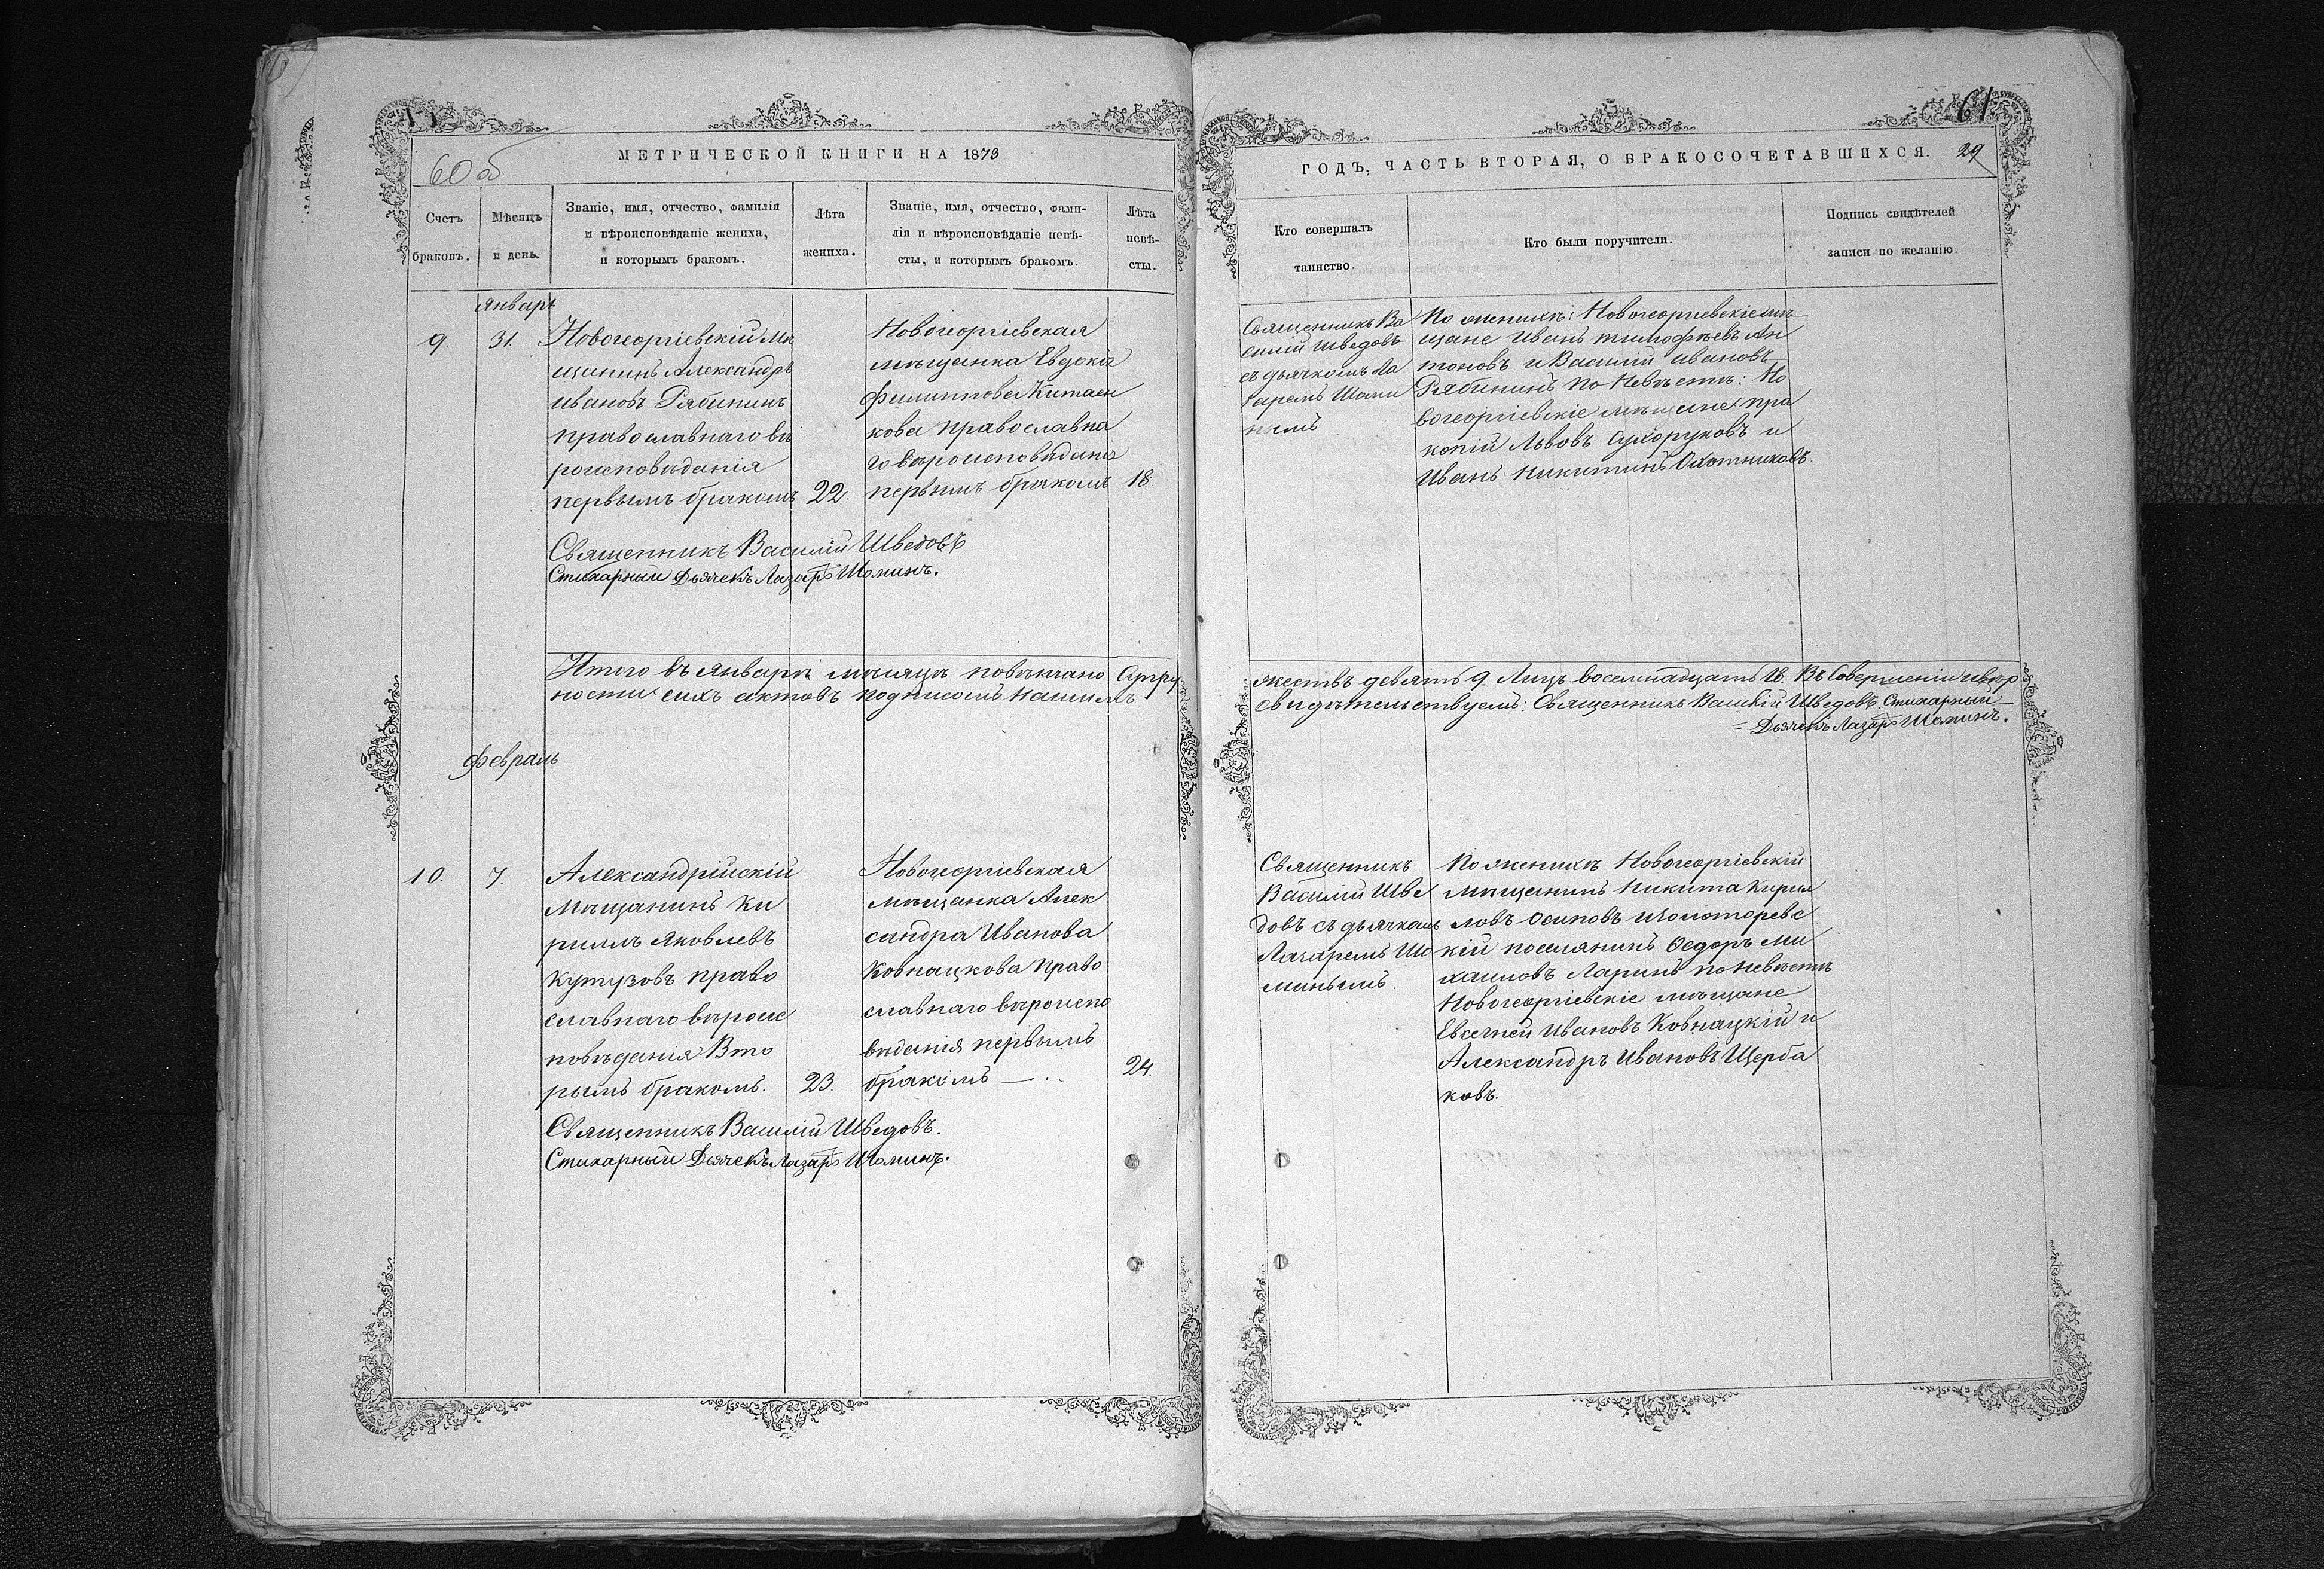 60 об
МЕТРИЧЕСКОЙ КНИГИ НА 1873
Счетъ
браковъ.
Мѣсяцъ
и день.
Званіе, имя, отчество, фамилія
и вѣроисповѣданіе жениха,
и которымъ бракомъ.
Лѣта
жениха.
Званіе, имя, отчество, фами-
лія и вѣроисповѣданіе невѣ-
сты, и которымъ бракомъ.
Лѣта
невѣ-
сты.
Январь
9.
31.
Новогеоргіевскій мѣ
щанинъ Александръ
Ивановъ Рябининъ
православнаго вѣ
роисповѣданія
первымъ бракомъ
22.
Новогеоргіевская
мѣщанка Евдокія
Филиппова Китаен
кова православна
го вѣроисповѣданія
первымъ бракомъ
18.
Священникъ Василій Шведовъ
Стихарный Дьячекъ Лазарь Шоминъ.
Итого въ Январѣ мѣсяцѣ повѣнчано Супру
ности сихъ актовъ подписомъ нашимъ
Февраль
10.
7.
Александрійскій
Мѣщанинъ Ки
риллъ Яковлевъ
Кутузовъ право
славнаго вѣроис
повѣданія Вто
рымъ бракомъ.
23.
Новогеоргіевская
мѣщанка Алек
сандра Иванова
Ковнацкова Право
славнаго вѣроиспо
вѣданія первымъ
бракомъ —
24.
Священникъ Василій Шведовъ.
Стихарный Дьячекъ Лазарь Шоминъ.
61
ГОДЪ, ЧАСТЬ ВТОРАЯ, О БРАКОСОЧЕТАВШИХСЯ. 29
Кто совершалъ
таинство.
Кто были поручители.
Подпись свидѣтелей
записи по желанію.
Священникъ Ва
силій Шведовъ
съ дьячкомъ Ла
заремъ Шоми
нымъ
По женихѣ: Новогеоргіевскіе мѣ
щане Иванъ Тимофѣевъ Ан
тоновъ и Василій Ивановъ
Рябининъ по Невѣстѣ: Но
вогеоргіевскіе мѣщане Про
копій Львовъ Сухоруковъ и
Иванъ Никитинъ Охотниковъ.
жествъ девять 9. Лицъ восемнадцать 18. Въ Совершеніи и вѣр
свидѣтельствуемъ: Священникъ Василій Шведовъ. Стихарный
Дьячекъ Лазарь Шоминъ.
Священникъ
Василій Шве
довъ съ дьячкомъ
Лазаремъ Шо
минымъ.
По женихѣ Новогеоргіевскій
мѣщанинъ Никита Кирил
ловъ Осиповъ Золоторевс
кій поселянинъ Ѳедоръ Ми
хаиловъ Ларинъ по невѣстѣ
Новогеоргіевскіе мѣщане
Евсегней Ивановъ Ковнацкій и
Александръ Ивановъ Щерба
ковъ.